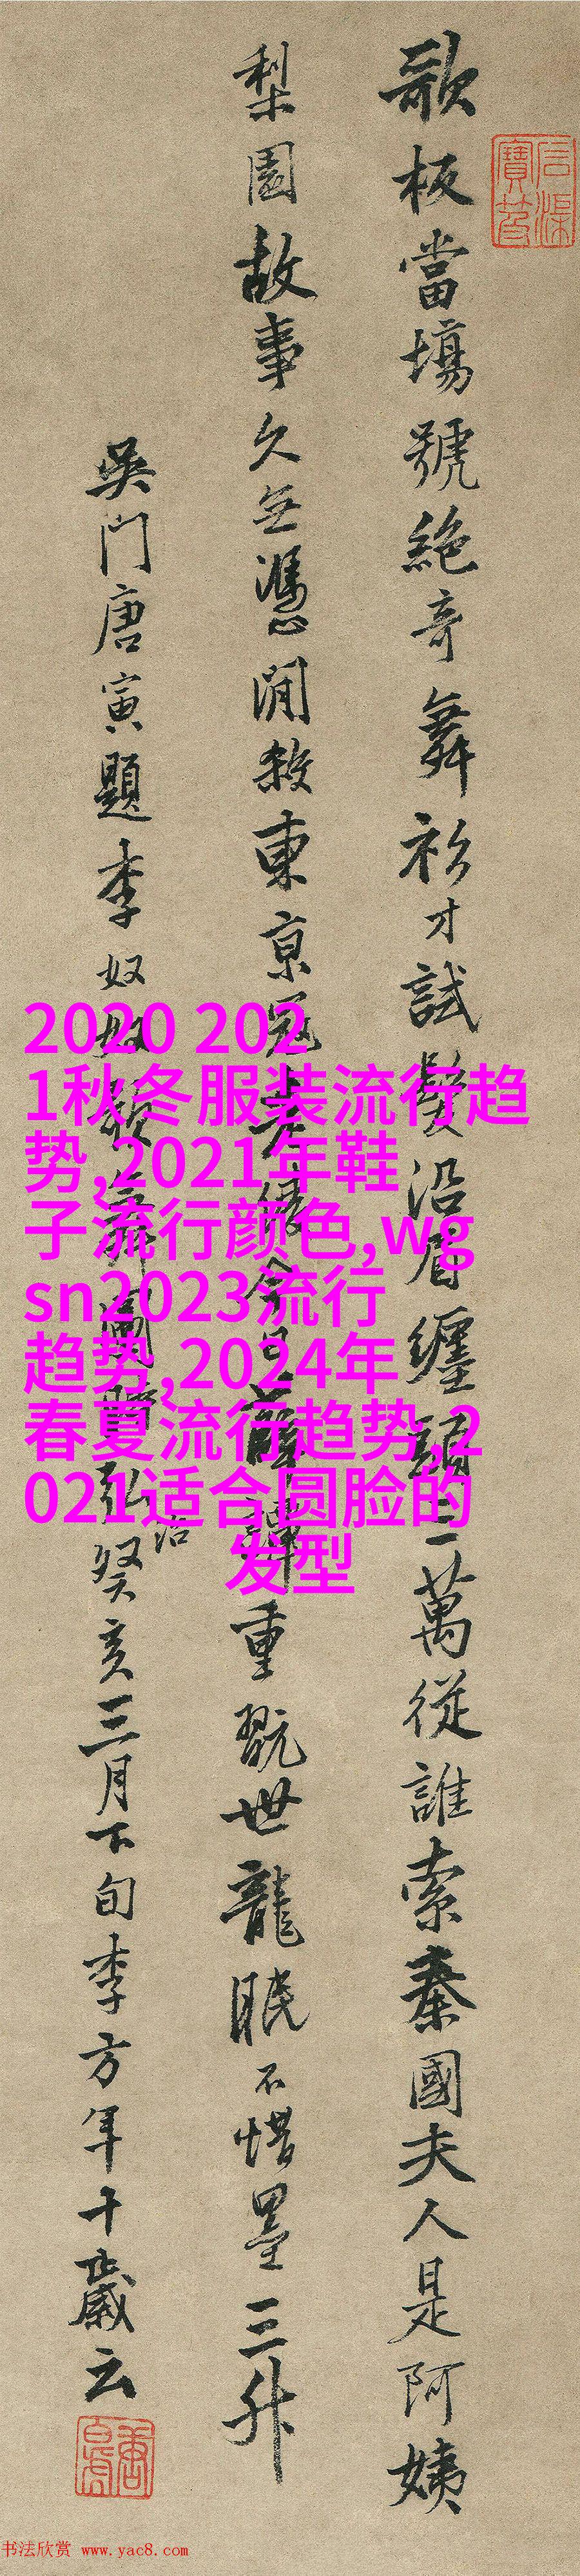 歌板當場號絶奇舞衫才試發沿眉纏頭三萬從誰索秦國夫人是阿姨
梨園故事久無憑閒殺東京冠老緣今日薛譚重翫世龍眠不惜墨三升
吳門唐寅題李奴奴歌舞圖時弘治癸亥三月下旬李方年十歲云
2020 202
1秋冬服装流行趋
势,2021年鞋
子流行颜色,wg
sn2023流行
趋势,2024年
春夏流行趋势,2
021适合圆脸的
发型
书法欣赏 www.yac8.com